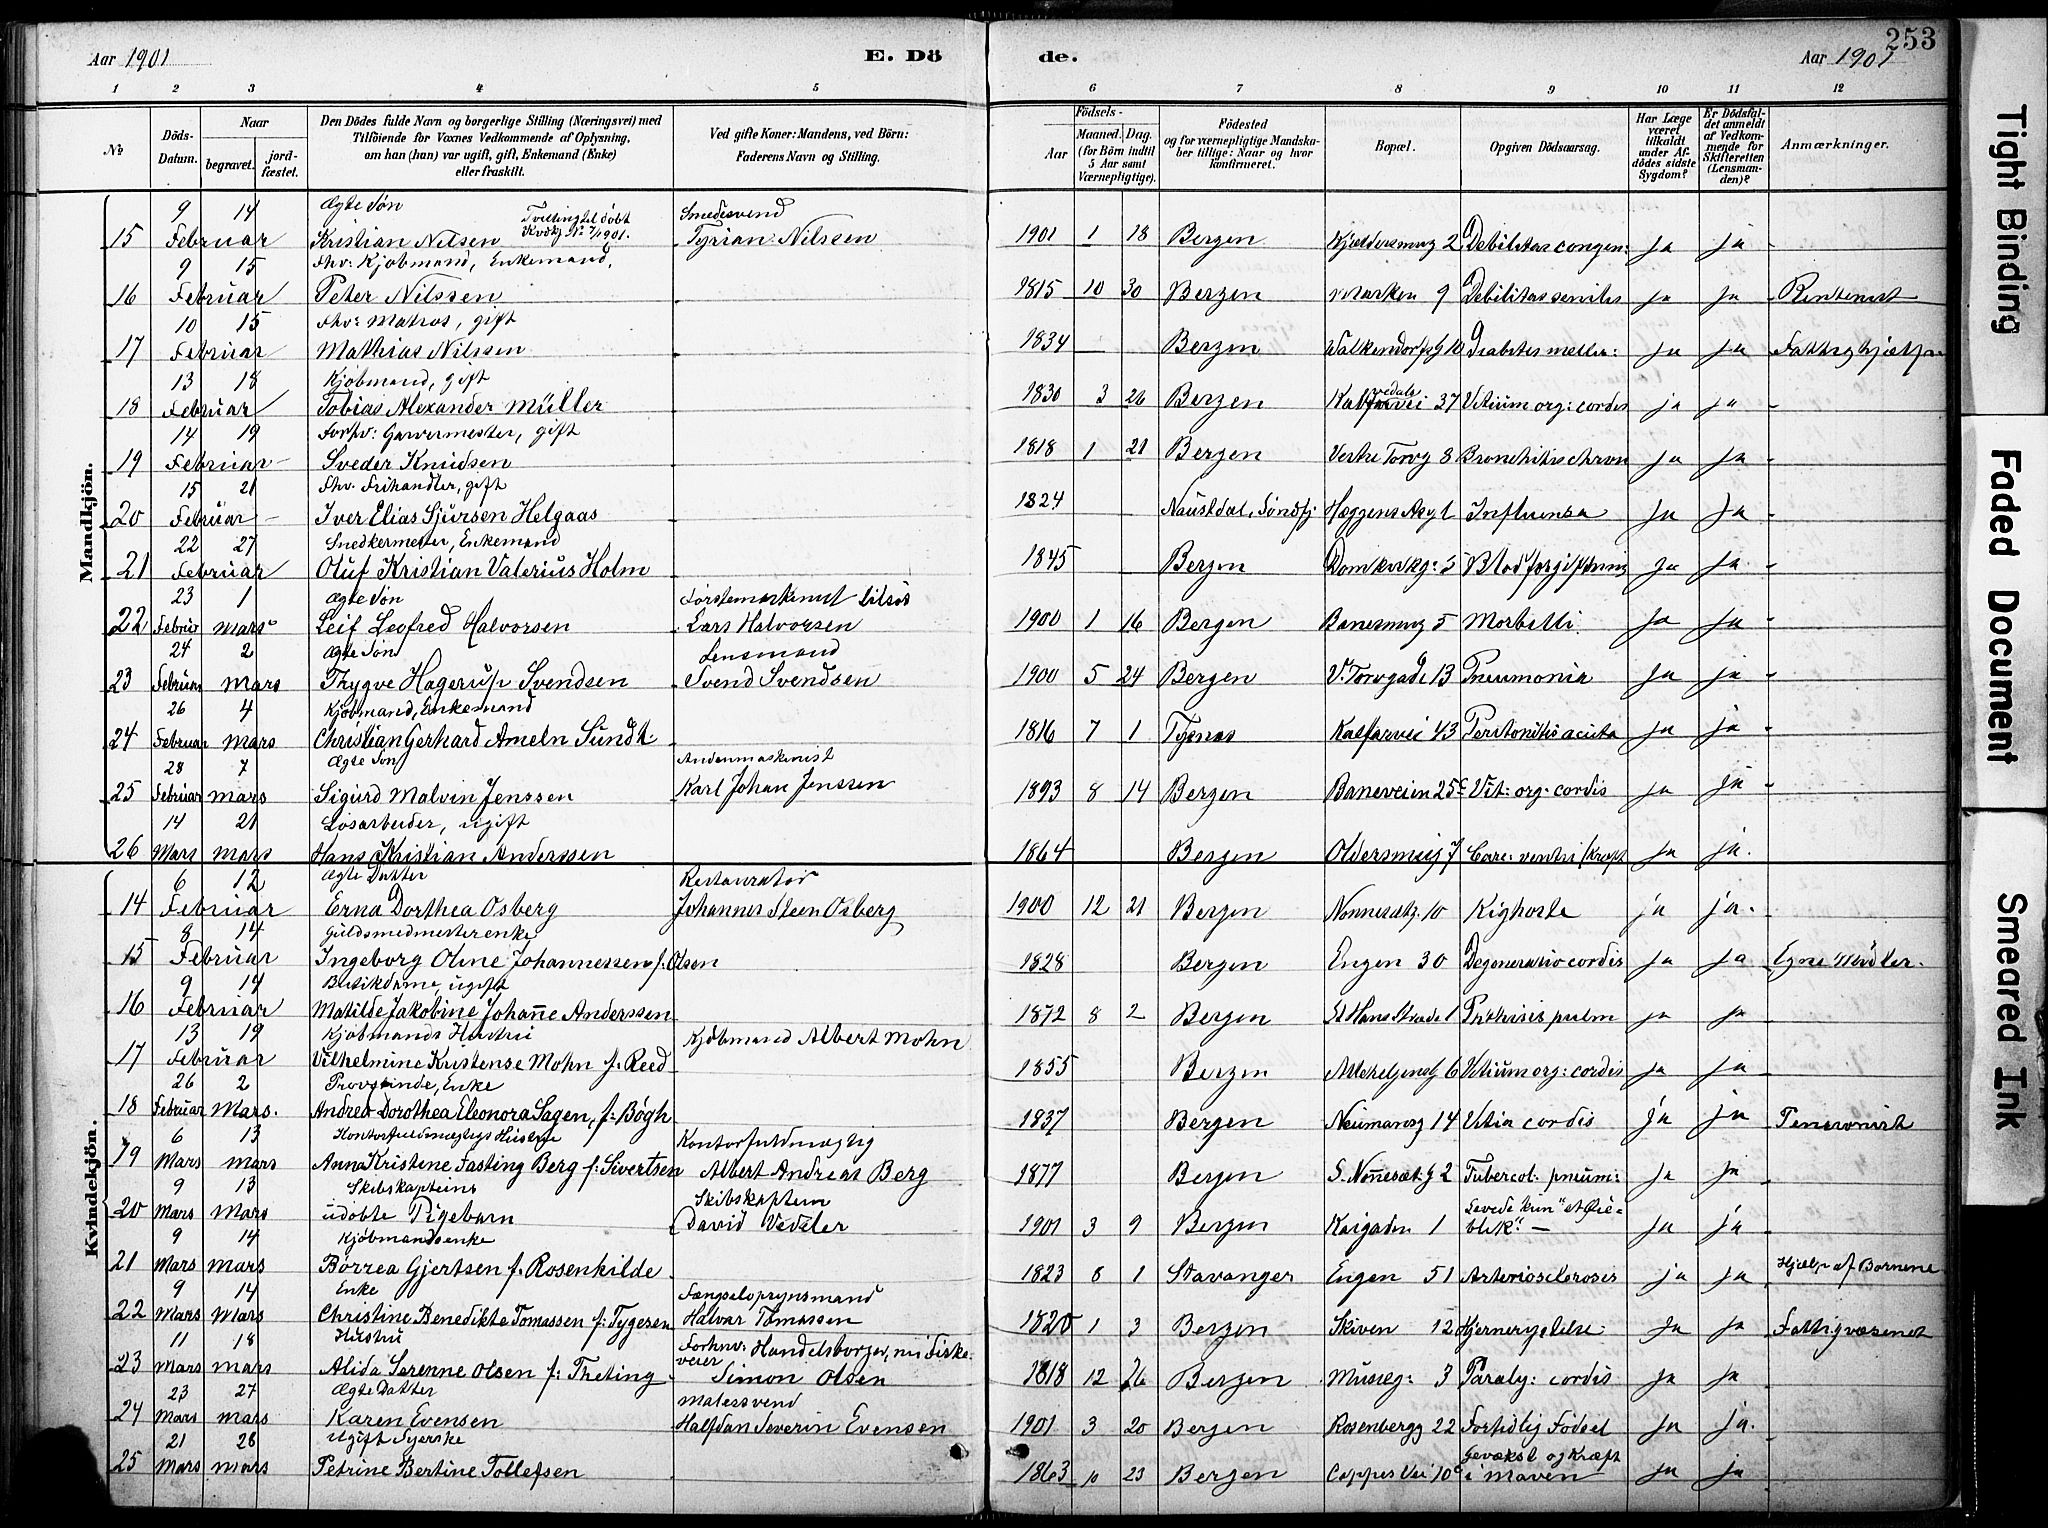 253
Aar 1901 E. Dö de. Aar 1901
1 2 3 4 5 6 7 8 9 10 11 12
№
Döds-Datum.
Naar
begravet. jord-fæstet.
Den Dödes fulde Navn og borgerlige Stilling (Næringsvei) med
Tilföiende for Voxnes Vedkommende af Oplysning,
om han (hun) var ugift, gift, Enkemand (Enke)
eller fraskilt.
Ved gifte Koner: Mandens, ved Börn:
Faderens Navn og Stilling.
Födsels-
Aar Maaned. Dag.
(for Börn indtil
5 Aar samt
Værnepligtige).
Födested
og for værnepligtige Mandska-
ber tillige: Naar og hvor
konfirmeret.
Bopæl.
Opgiven Dödsaarsag.
Har Læge
været
tilkaldt
under Af-
dödes sidste
Sygdom?
Er Dödsfal-
det anmeldt
af Vedkom-
mende for
Skifteretten
(Lensman-
den)?
Anmærkninger.
Mandkjön.
9 14 Ægte Søn Tvilling til døbt Smedesvend
15 Februar Kristian Nilsen Kvdkj. No 7/1901. Tyrian Nilssen 1901 1 18 Bergen 2 Debilitas congen: ja ja -
9 15 Fhv: Kjøbmand, Enkemand,
16 Februar Peter Nilssen 1815 10 30 Bergen Marken 9 Debilitas senilis ja ja Rentenist
10 15 Fhv: Matros, gift
17 Februar Mathias Nilssen 1834 Bergen Walkendorfsg 10 Diabetes meller: ja ja Fattighjælp
13 18 Kjøbmand, gift
18 Februar Tobias Alexander Müller 1830 3 26 Bergen Kalvedalsvei 37 Vitium org: cordis ja ja -
14 19 Forhv: Garvermester, gift
19 Februar Sveder Knudsen 1818 1 21 Bergen Vestre Torvg 8 Bronchitis chron ja ja -
15 21 Fhv. Frihandler, gift
20 Februar Iver Elias Sjursen Helgaas 1824 Naustdal, Søndfj Hæggens Asyl Influenza ja ja -
22 27 Snedkermester, Enkemand
21 Februar Oluf Kristian Valerius Holm 1845 Bergen Domkirkg: 5 Blodforgiftning ja ja -
23 1 Ægte Søn
22 Februar mars Leif Leofred Halvorsen Lars Halvorsen 1900 1 16 Bergen 5 Morbilli ja ja -
24 2 Ægte Søn Lensmand
23 Februar mars Thygve Hagerup Svendsen Svend Svendsen 1900 5 24 Bergen V. Torvgade 13 Pneumonia ja ja -
26 4 Kjøbmand, Enkemand
24 Februar mars Christian Gerhard Ameln Sundt 1816 7 1 Tysnes Kalfarvei 43 Peritonitis acuta ja ja -
28 7 Ægte Søn Andenmaskinist
25 Februar mars Sigurd Malvin Jenssen Karl Johan Jenssen 1893 8 14 Bergen Baneveien 25c Vit: org: cordis ja ja -
14 21 Løsarbeider, ugift
26 Mars mars Hans Kristian Anderssen 1864 Bergen Oldersmug 7 Carc: ventri (Kræft ja ja.
Kvindekjön.
6 12 Ægte Datter Restauratør
14 Februar Erna Dorthea Osberg Johannes Steen Osberg 1900 12 21 Bergen Nonnesætg. 10 Kighoste ja ja.
8 14 Guldsmedmesterenke
15 Februar Ingeborg Oline Johannessen f. Olsen 1828 Bergen Engen 30 Degeneratio cordis ja ja Egne Midler.
9 14 Butikdame, ugift
16 Februar Matilde Jakobine Johanne Anderssen 1872 8 2 Bergen St Hans Strade 1 Phthisis pulm ja ja
13 19 Kjøbmands Hustru Kjøbmand Albert Mohn
17 Februar Vilhelmine Kristense Mohn f. Reed 1855 Bergen 6 Vitium org: cordis ja ja
26 2 Provstinde, Enke
18 Februar Mars. Andrea Dorothea Eleonora Sagen, f: Bøgh 1837 Bergen Neumannsg 14 Vitia cordis ja ja Pensionist
6 13 Kontorfuldmægtigs Hustru Kontorfuldmægtig
19 Mars mars Anna Kristene Fasting Berg f: Sivertsen Albert Andreas Berg 1877 Bergen S. Nonnesæt. g 2 Tubercol: pneum: ja ja
9 13 Skibskapteins Skibskaptein
20 Mars Mars udøbte Pigebarn David Vedeler 1901 3 9 Bergen Kaigaden 1 Levede kun "et Øie-
blik" - ja ja
9 14 Kjøbmandsenke
21 Mars mars Børrea Gjertsen f. Rosenkilde 1823 8 1 Stavanger Engen 51 Arteriosclerosis ja ja Hjælp af Børnene
9 14 Enke Fængselopsynsmand
22 Mars Mars Christine Benedikte Tomassen f: Tygesen Halvar Tomassen 1820 1 3 Bergen Skiven 12 Hjernerystelse ja ja Fattigvæsenet
11 18 Hustru Forhnv: Handelsborger, nu Fiske-
veier
23 Mars mars Alida Serenne Olsen f: Theting Simon Olsen 1818 12 26 Bergen Museg: 3 Paraly: cordis ja ja
23 27 Ægte Datter Malersvend
24 Mars mars Karen Evensen Halfdan Severin Evensen 1901 3 20 Bergen Rosenbergg 22 Fortidlig Fødsel ja ja.
21 28 Ugift Syerske
25 Mars mars Petrine Bertine Tollefsen 1863 10 23 Bergen Coppes Vei 10c Gevækst og Kræft
i maven ja ja
Tight Binding
Faded Document
Smeared Ink